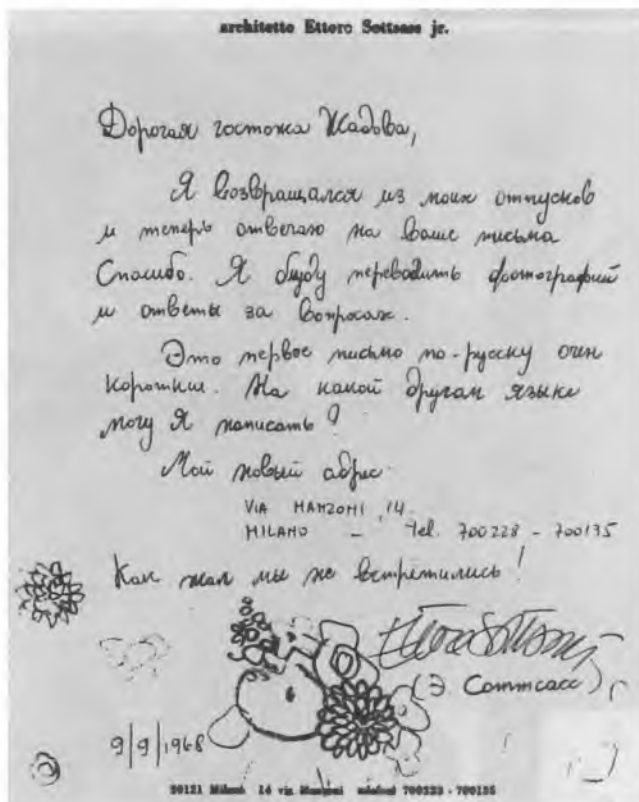 architetto Ettore Sottsass jr.
Дорогая гостожа Жадова,
Я возвращался из моих отпусков
и теперь отвечаю на ваше письма
Спасибо. Я буду переводить фотографий
и ответы за вопросах.
Это первое письмо по-русску очен
коротким. На какой другам языке
могу Я написать?
Мой новый адрес
VIA MANZONI, 14
MILANO – Tel. 700228 - 700135
Как жал мы не встретились!
Ettore Sottsass
(Э. Соттсасс)
9/9/1968
20121 Milano 14 via Manzoni telefoni 700228 - 700135